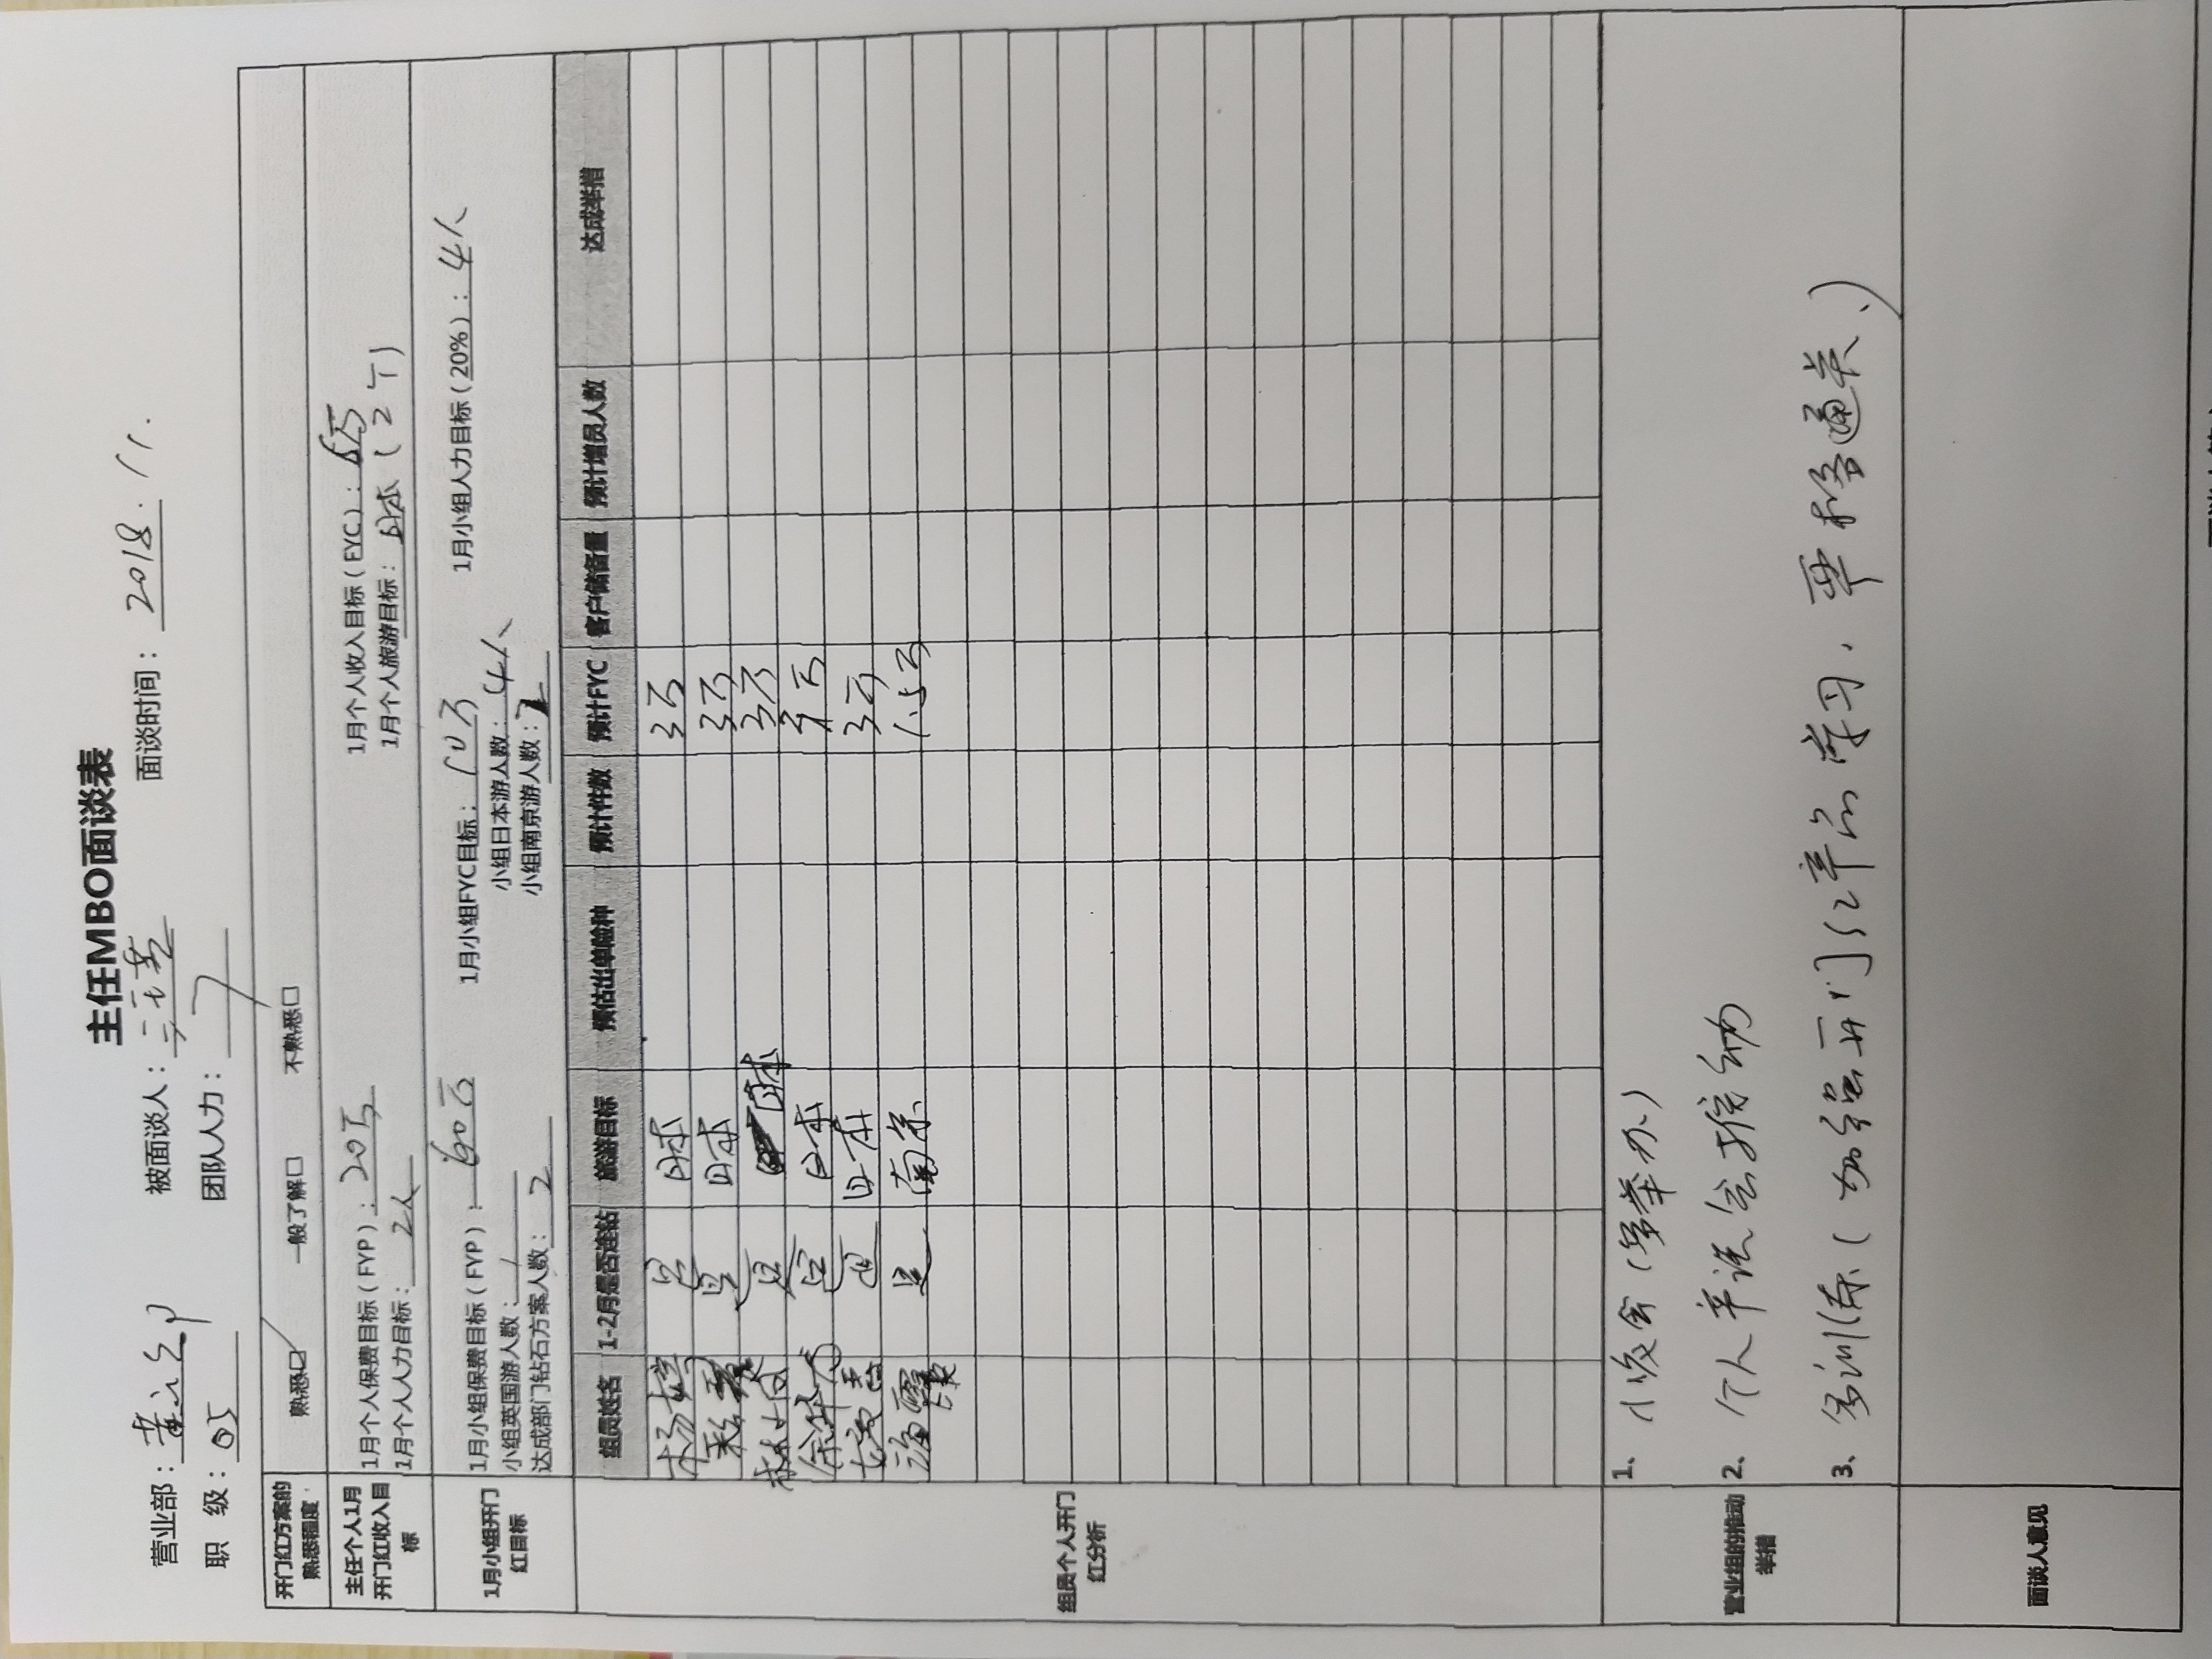 主任MBO面谈表
营业部： 被面谈人： 面谈时间：2018.11.
职 级： 团队人力：7
开门红方案的熟悉程度 熟悉☑ 一般了解□ 不熟悉□
主任个人1月开门红收入目标
1月个人保费目标（FYP）：20万 1月个人收入目标（FYC）：6万
1月个人人力目标：2人 1月个人旅游目标：日本（2个）
1月小组开门红目标
1月小组保费目标（FYP）：60万 1月小组FYC目标：10万 1月小组人力目标（20%）：4人
小组英国游人数：1 小组日本游人数：4人
达成部门钻石方案人数：2 小组南京游人数：
组员个人开门红分析
组员姓名 1-2月是否连钻 旅游目标 预估出单险种 预计件数 预计FYC 客户储备量 预计增员人数 达成举措
是 日本 3万
是 日本 3万
是 日本 3万
是 日本 万
是 日本 3万
是 南京 1.5万
营业组的推动举措
1、小 会（多举办）
2、个人 会
3、多训练（加强开门红产品学习， 通关、）
面谈人意见